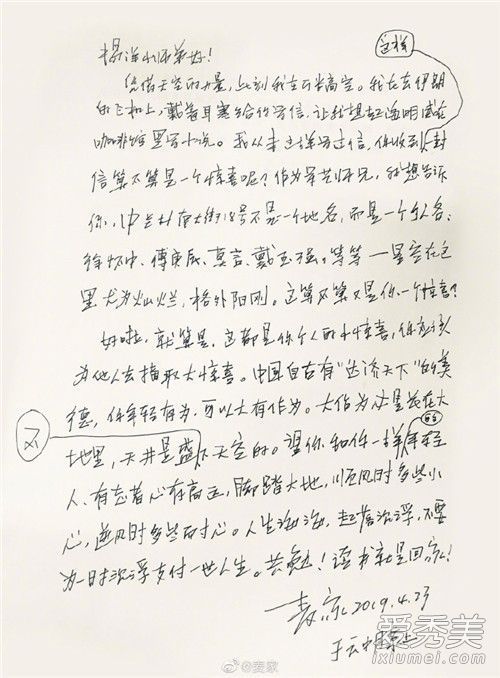 杨洋小师弟好！
这样
凭借天空的力量，此刻我在万米高空。我在去伊朗
的飞机上，戴着耳塞给你写信，让我想起海明威在
咖啡馆里写小说。我从未这样写过信，你收到一封
信算不算是一个惊喜呢？作为军艺师兄，我想告诉
你，中关村南大街18号不是一个地名，而是一个个人名：
徐怀中、傅庚辰、莫言、戴玉强。等等——星空在这
里尤为灿烂，格外阳刚。这算不算又是你一个惊喜？
好啦，就算是，这都是你个人的小惊喜，你应该
为他人去摘取大惊喜。中国自古有“达济天下”的美
德，你年轻有为，可以大有作为。大作为必是长在大
不
地里，天井是盛下天空的。望你和你一样的年轻
人，有志者心存高远，脚踏大地，顺风时多些小
心，逆风时多些耐心。人生海海，起落沉浮，不要
为一时沉浮支付一世人生。共勉！读书就是回家！
麦家 2019.4.23
于云 上
@麦家
爱秀美
ixiumei.com